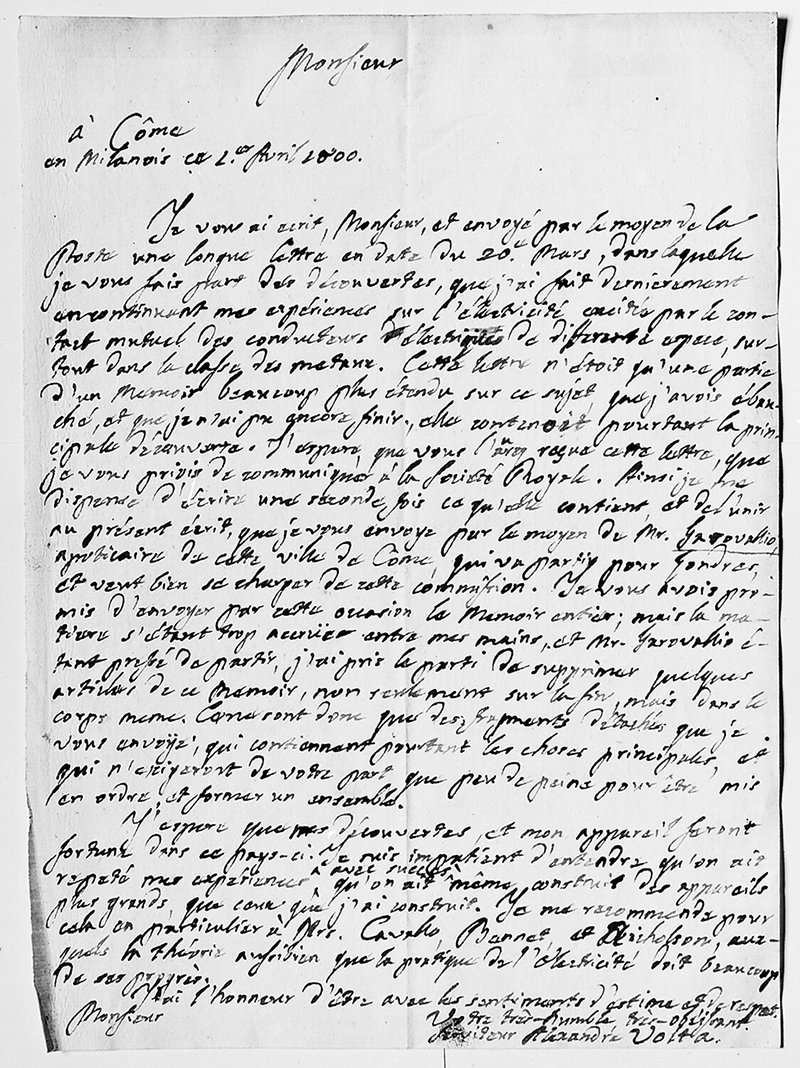 Monsieur
à Côme
en Milanois ce 1.er Avril 1800.
Je vous ai ecrit, Monsieur, et envoyé par le moyen de la
Poste une longue lettre en date du 20.e Mars, dans laquelle
je vous fais part des découvertes, que j'ai fait dernierement
en continuant mes expériences sur l'électricité excitée par le con-
tact mutuel des conducteurs électriques de differente espece, sur-
tout dans la classe des metaux. Cette lettre n'étoit qu'une partie
d'un Memoir beaucoup plus étendu sur ce sujet, que j'avois ébau-
ché, et que je n'ai pu encore finir; elle contenoit pourtant la prin-
cipale découverte. J'espere, que vous l'aurez reçue cette lettre, que
je vous priois de communiquer à la Societé Royale. Ainsi je me
dispense d'écrire une seconde fois ce qu'elle contient, et de l'unir
au présent écrit, que je vous envoye par le moyen de Mr. Garovallio
apoticaire de cette ville de Côme, qui va partir pour Londres,
et veut bien se charger de cette commission. Je vous avois pro-
mis d'envoyer par cette occasion le Memoir entier; mais la ma-
tiere s'étant trop accruë entre mes mains, et Mr. Garovallio é-
tant pressé de partir, j'ai pris le parti de supprimer quelques
articles de ce Memoir, non seulement sur la fin, mais dans le
corps meme. Ce ne sont donc que des fragments détachés que je
vous envoÿe, qui contiennent pourtant les choses principales, et
qui n'exigeront de votre part que peu de peine pour être mis
en ordre, et former un ensemble.
J'espere que mes découvertes, et mon appareil feront
fortune dans ce pays-ci. Je suis impatient d'entendre qu'on ait
repeté mes expériences avec succès, qu'on ait même construit des appareils
plus grands que ceux que j'ai construit. Je me recommende pour
cela en particulier à Mrs. Cavallo, Bennet, et Nicholson, aux-
quels la théorie aussibien que la pratique de l'électricité doit beaucoup
de ses progrès.
J'ai l'honneur d'être avec les sentiments d'estime et de respet.
Monsieur
Votre très-humble très-obeissant
serviteur Alexandre Volta.